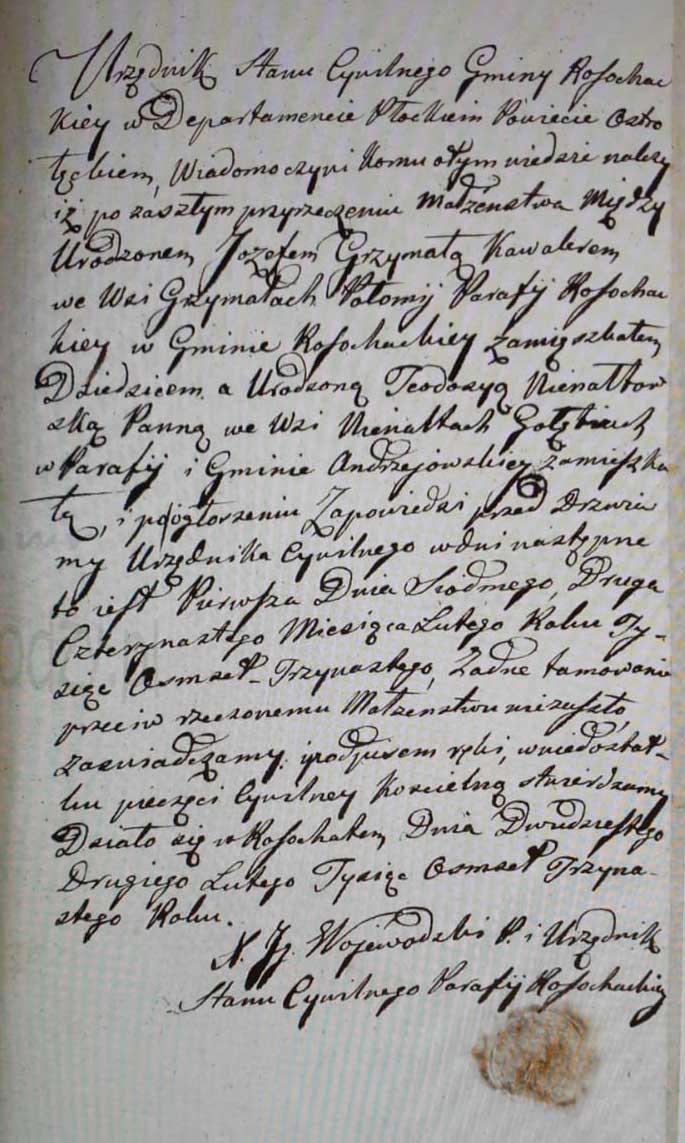 Urzędnik Stanu Cywilnego Gminy Rosochac
kiey w Departamencie Płockiem Powiecie Ostro
łęckiem, Wiadomo czyni komu o tym wiedzie należy
iż po zaszłym przyrzeczeniu Małżenstwa Między
Urodzonem Jozefem Grzymałą Kawalerem
we Wsi Grzymałach Połomij Parafij Rosochac
kiey w Gminie Rosochackiey zamięszkałem
Dziedzicem a Urodzoną Teodozyą Nienałtow
ską Panną we Wsi Nienałtach Gołębiach
w Parafij i Gminie Andrzejowskiey zamieszka
łą, i po ogłoszeniu Zapowiedzi przed Drzwia
my Urzędnika Cywilnego w dni następne
to iest Pierwsza Dnia Siodmego, Druga
Czternastego Miesiąca Lutego Roku Ty-
siąc Osmset Trzynastego, Żadne tamowanie
przeciw rzeczonemu Małzenstwu nizaszło,
zaswiadczamy i podpisem ręki, w niedostat-
ku pieczęci Cywilney Koscielną stwierdzamy
Działo się w Rosochatem Dnia Dwudziestego
Drugiego Lutego Tysiąc Osmset Trzyna-
stego Roku.
X. Jg. Wojewodzki P. i Urzędnik
Stanu Cywilnego Parafij Rosochackiey